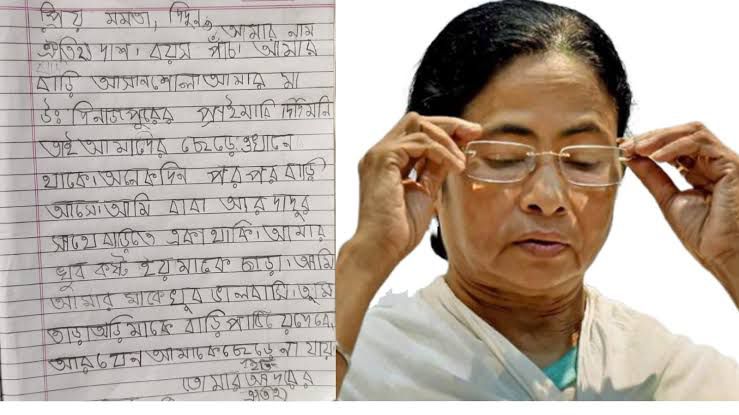 প্রিয় মমতা, দিদুন, আমার নাম
ঐতিহ্য দাশ। বয়স পাঁচ। আমার
বাড়ি আসানশোল। আমার মা
উঃ দিনাজপুরের প্রাইমারি দিদিমনি
তাই আমাদের ছেড়ে ওখানে
থাকে। অনেকদিন পর পর বাড়ি
আসে। আমি বাবা আর দাদুর
সাথে বাড়িতে একা থাকি। আমার
খুব কষ্ট হয় মাকে ছাড়া। আমি
আমার মাকে খুব ভালবাসি। তুমি
তাড়াতাড়ি মাকে বাড়ি পাঠিয়ে দেবে,
আর যেন আমাকে ছেড়ে না যায়
তোমার আদরের
ঐতিহ্য